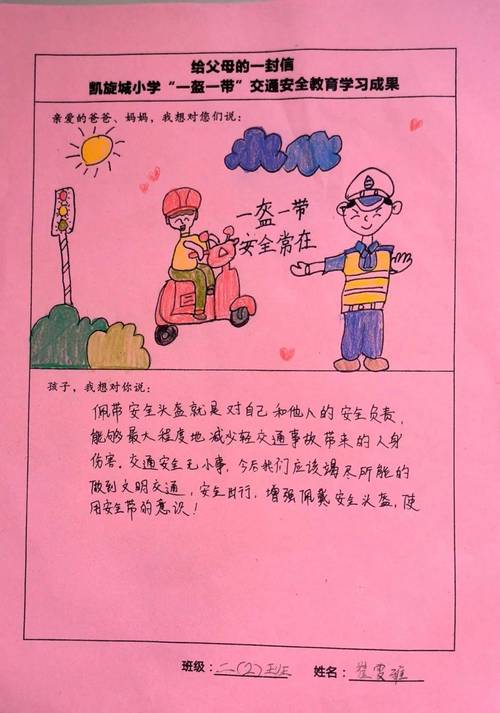 给父母的一封信
凯旋城小学“一盔一带”交通安全教育学习成果
亲爱的爸爸、妈妈，我想对您们说：
一盔一带
安全常在
孩子，我想对你说：
佩带安全头盔就是对自己和他人的安全负责，
能够最大程度地减少轻交通事故带来的人身
伤害。交通安全无小事，今后我们应该竭尽所能的
做到文明交通，安全出行，增强佩戴安全头盔，使
用安全带的意识！
班级：二（2）班 姓名：雯雅